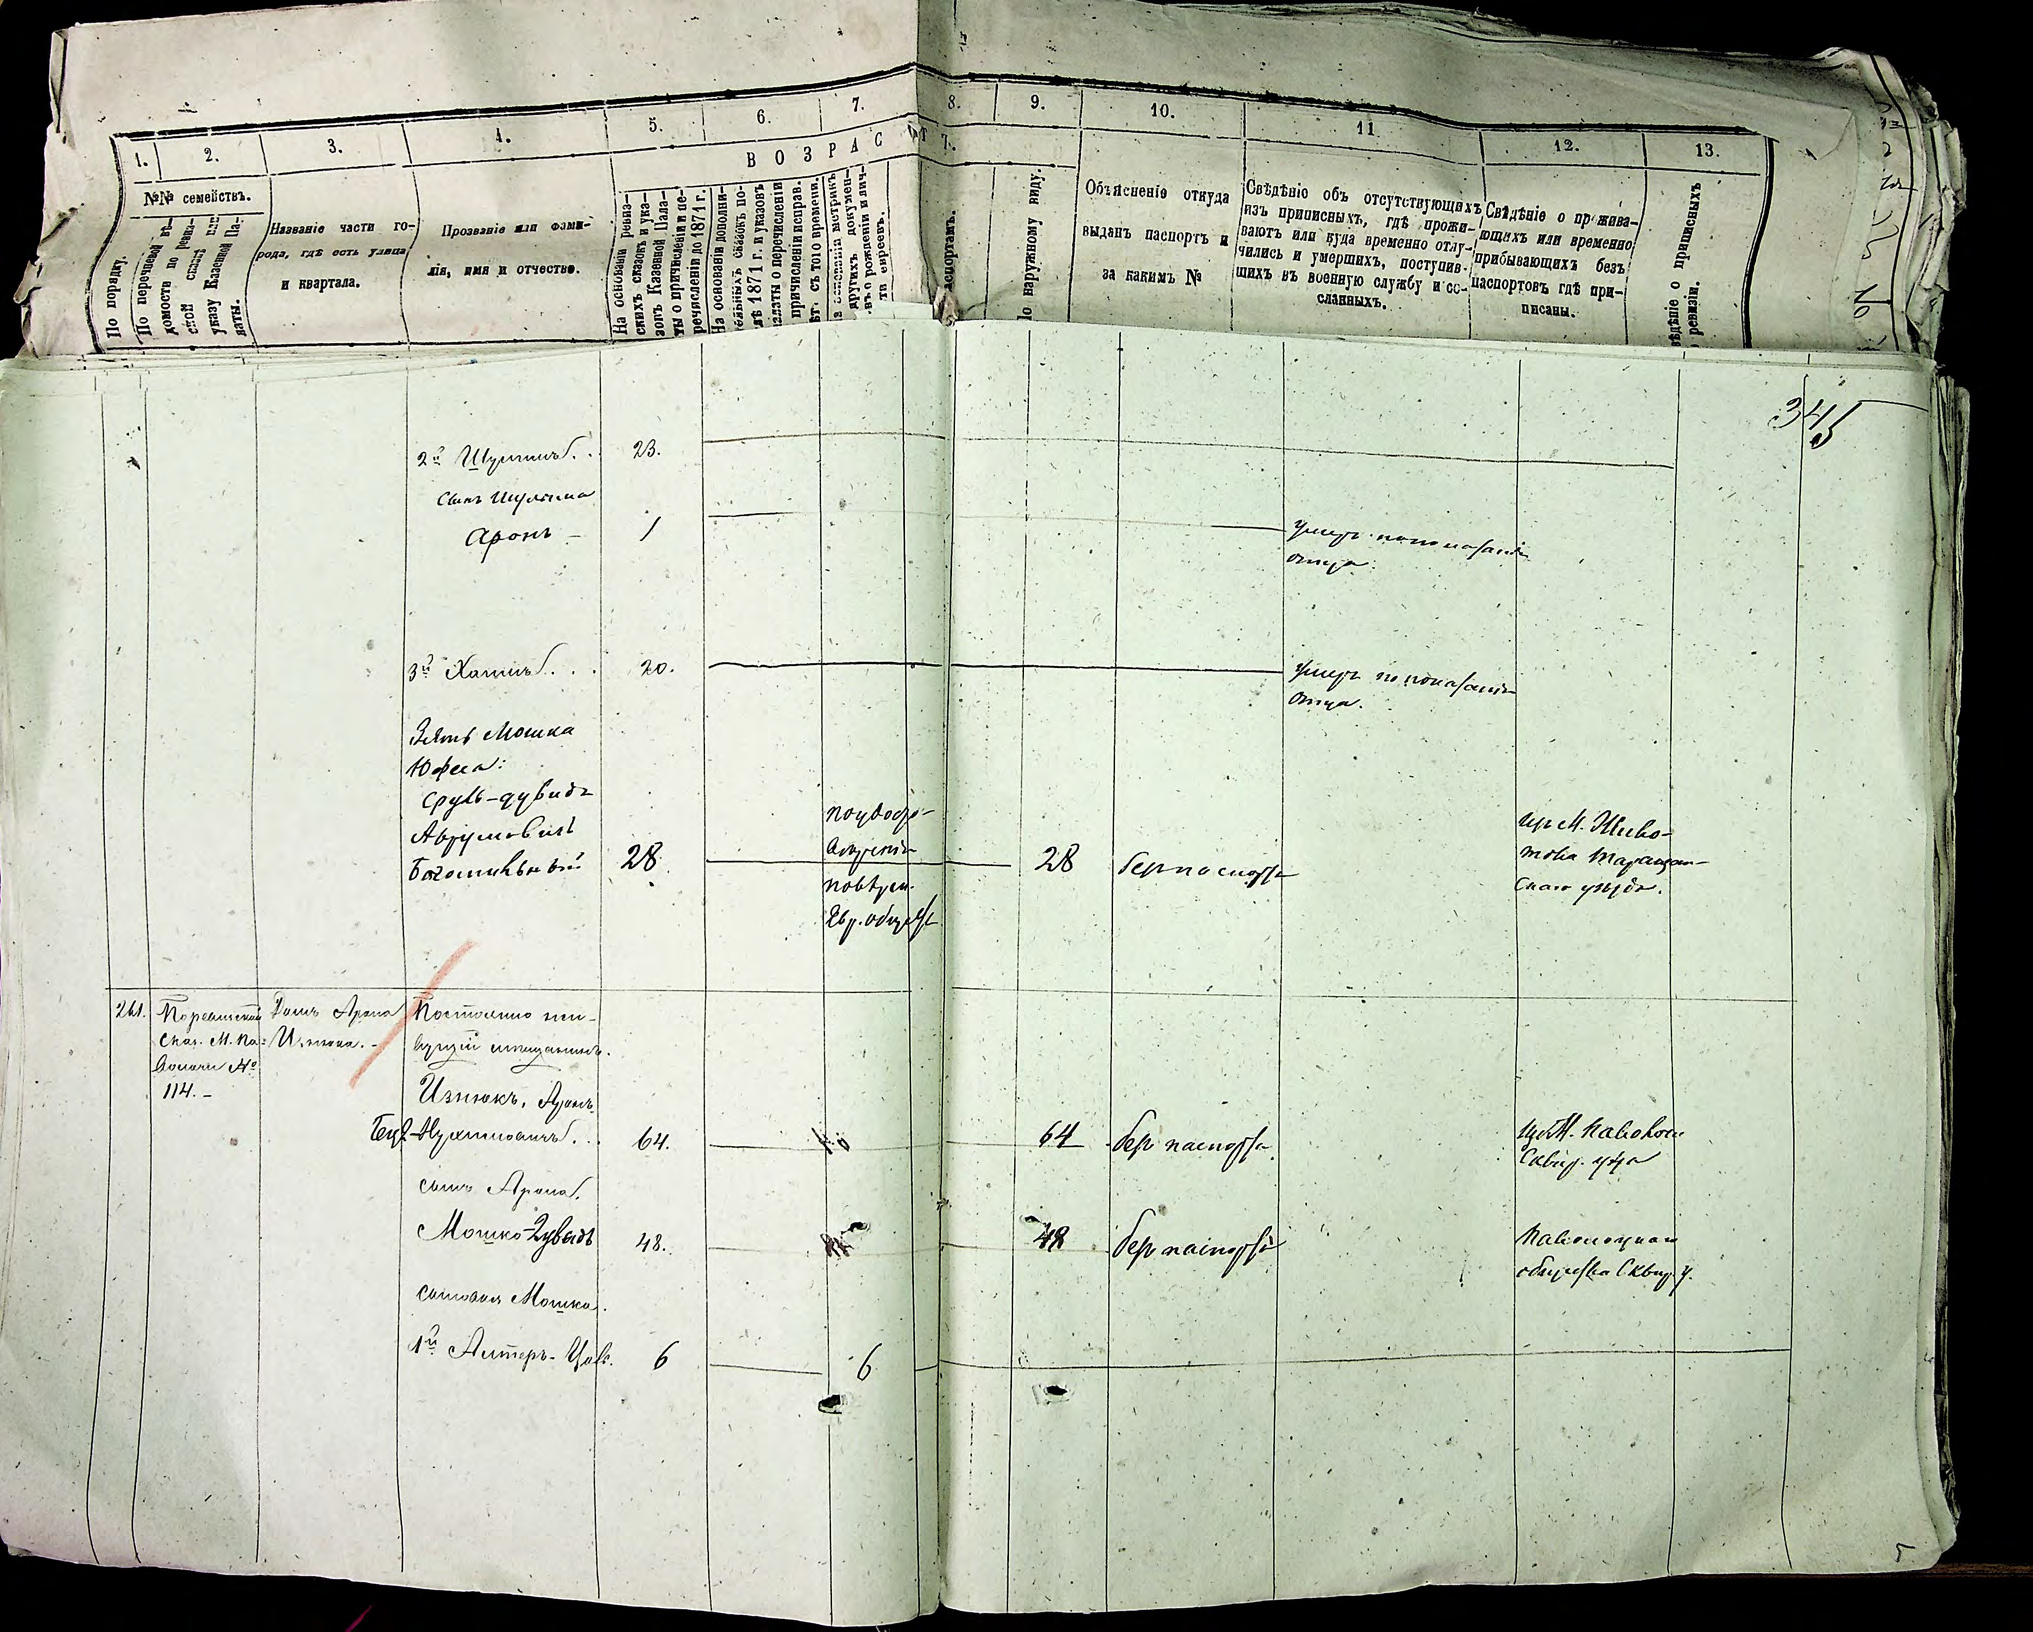 1.
2.
3.
4.
5.
6.
7.
8.
9.
10.
11
12.
13.
ВОЗРАСТ
№№ семействъ.
По порядку.
По перечневой вѣ-
домости по ревиз-
ской сказкѣ или
указу Казенной Па-
латы.
Названіе части го-
рода, гдѣ есть улица
и квартала.
Прозваніе или фами-
лія, имя и отчество.
На основаніи ревиз-
скихъ сказокъ и ука-
зовъ Казенной Пала-
ты о причисленіи и пе-
речисленіи до 1871 г.
На основаніи дополни-
тельныхъ сказокъ по-
слѣ 1871 г. и указовъ
палаты о перечисленіи
причисленіи исправ.
лѣтъ съ того времени.
На основаніи метрикъ
другихъ докумен-
въ о рожденіи и лич-
ти евреевъ.
паспортамъ.
По наружному виду.
Объясненіе откуда
выданъ паспортъ и
за какимъ №
Свѣдѣніе объ отсутствующихъ
изъ приписныхъ, гдѣ прожи-
ваютъ или куда временно отлу-
чились и умершихъ, поступив-
шихъ въ военную службу и сос-
сланныхъ.
Свѣдѣніе о прожива-
ющихъ или временно
прибывающихъ безъ
паспортовъ гдѣ при-
писаны.
вѣдѣніе о приписныхъ
ревизіи.
345
2й Шулимъ. . 23.
сынъ Шулима
Аронъ - 1
умеръ по показанію
отца.
3й Хаимъ . . . 20.
умеръ по показанію
отца.
Зять Мошка
Юфеса:
Сруль-Дувидъ
Аврумовичъ
28 28 безъ паспорта
по удосто-
вѣренію
повѣрен.
Евр. обществ
изъ М. Живо-
това Таращан-
скаго уѣзда.
261.
Поревизской
сказ. М. Па-
волочи №
114. -
Домъ Арона
Изнюка. -
Постоянно жи-
вущій мещанинъ.
Изнюкъ, Аронъ
Нухимовичъ. . 64. 64 безъ паспорта
изъ М. Паволочи
Сквир. у-да
сынъ Арона.
Мошко-Дувидъ 48. 48 безъ паспорта
Паволоцкаго
общества Сквир. у.
сыновья Мошка.
1й Алтеръ- 6 6